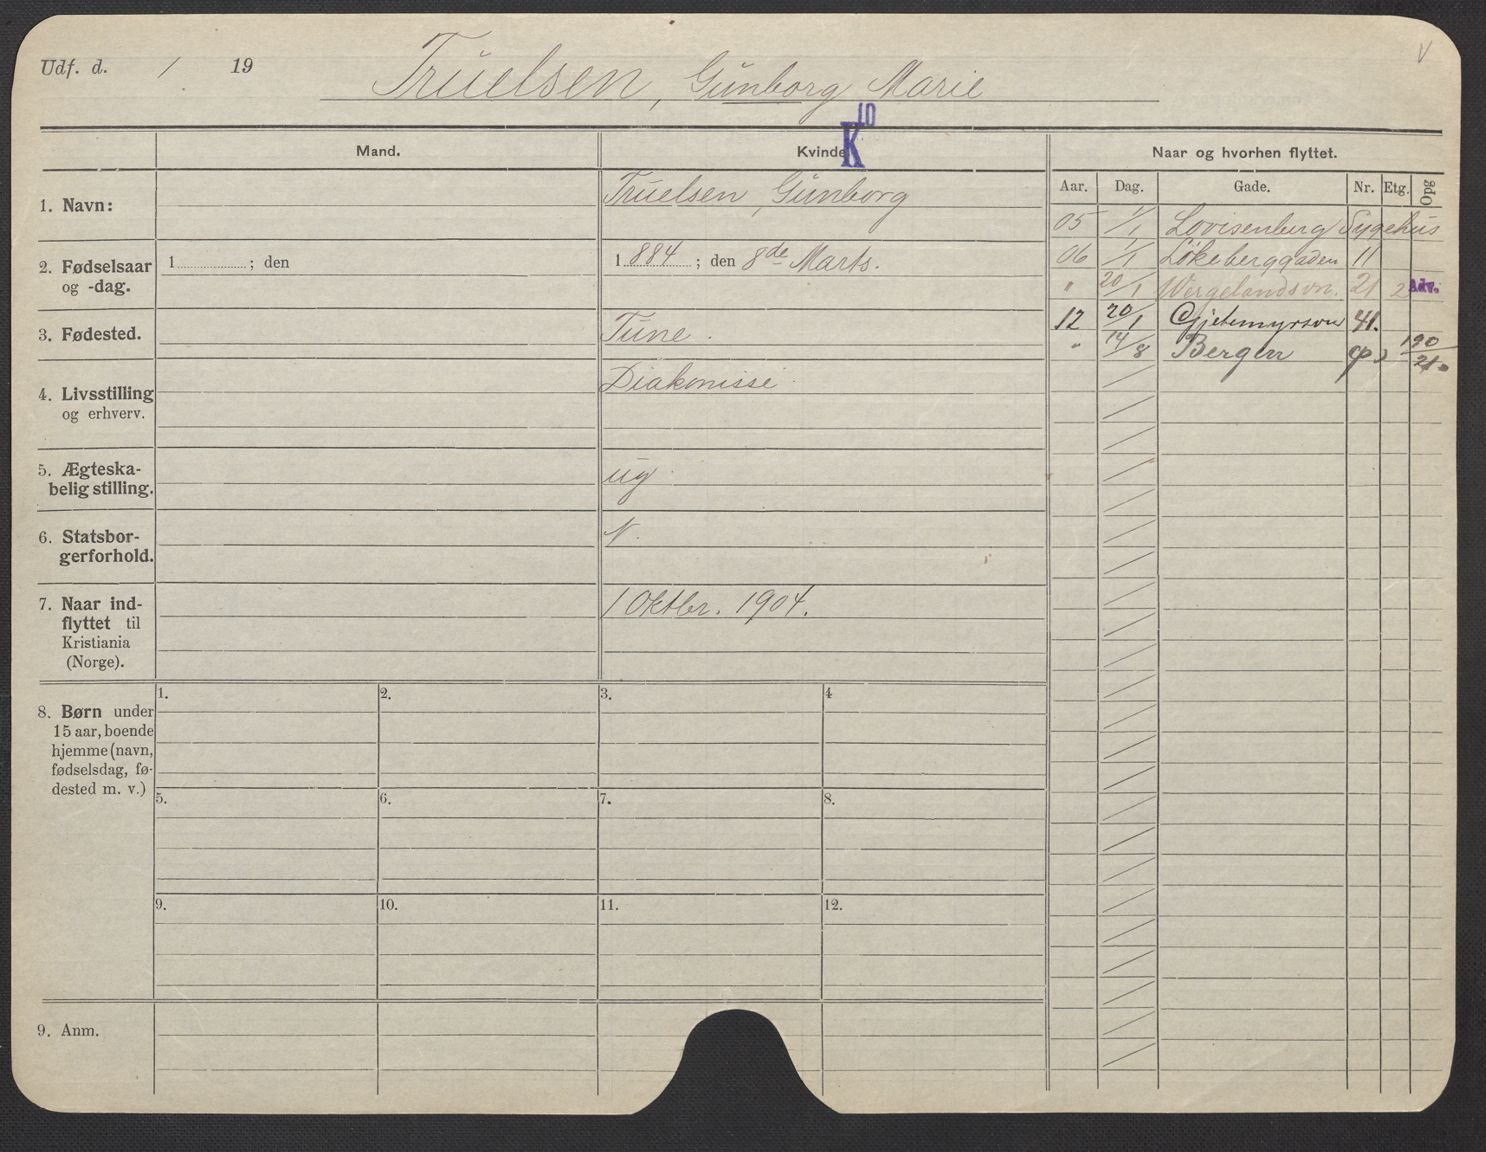 Udf. d. / 19
Truelsen, Gunborg Marie
V
10
K
Mand.
Kvinde
Naar og hvorhen flyttet.
Aar. Dag. Gade. Nr. Etg. Opg
1. Navn:
Truelsen, Gunborg
2. Fødselsaar
og -dag.
1 ; den
1 884 ; den 8de Marts.
3. Fødested.
Tune.
4. Livsstilling
og erhverv.
Diakonisse
5. Ægteska-
belig stilling.
ug
6. Statsbor-
gerforhold.
N.
7. Naar ind-
flyttet til
Kristiania
(Norge).
1 Oktbr. 1904.
05 1/1 Lovisenberg Sygehus
06 1/1 Løkeberggaden 11
" 20/1 Wergelandsvn. 21 2 Adv.
12 20/1 Gjetemyrsvn 41.
" 14/8 Bergen 190/21.
8. Børn under
15 aar, boende
hjemme (navn,
fødselsdag, fø-
dested m. v.)
1. 2. 3. 4
5. 6. 7. 8.
9. 10. 11. 12.
9. Anm.